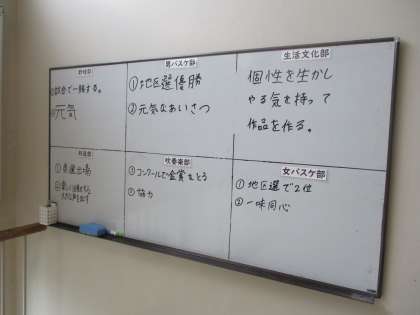 野球部
①試合で一勝する。
②元気
男バスケ部
①地区選優勝
②元気なあいさつ
生活文化部
個性を生かし
やる気を持って
作品を作る。
①県選出場
大きな声を出す
吹奏楽部
①コンクールで金賞をとる
②協力
女バスケ部
①地区選で2位
②一味同心